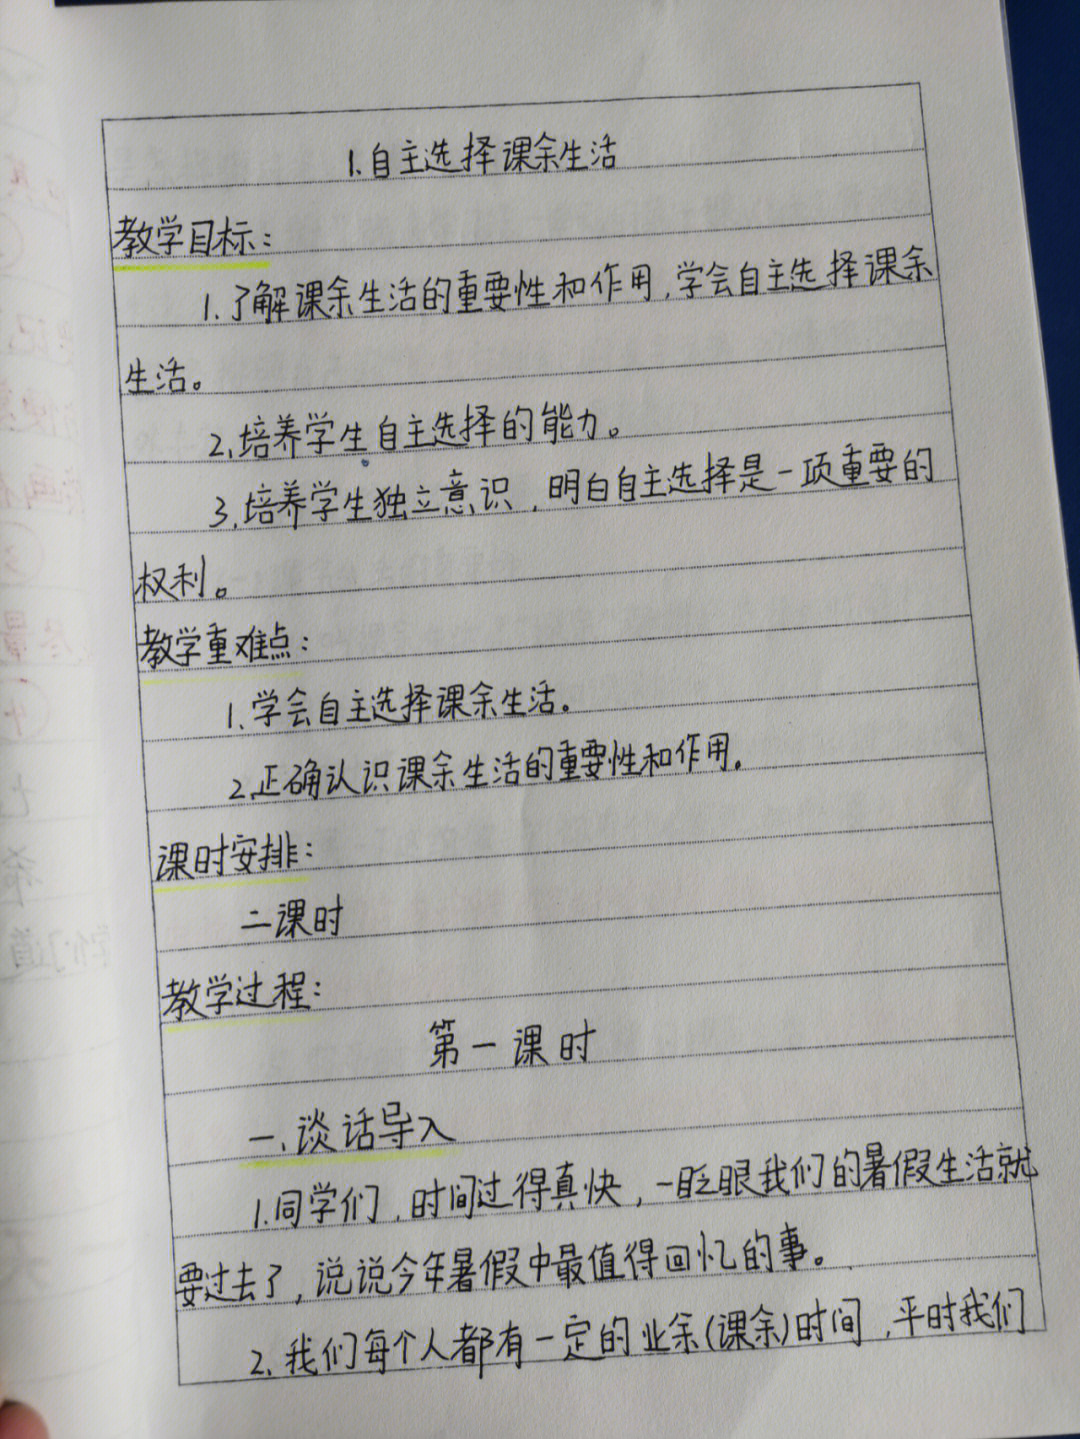 1.自主选择课余生活
教学目标：
1.了解课余生活的重要性和作用，学会自主选择课余
生活。
2.培养学生自主选择的能力。
3.培养学生独立意识，明白自主选择是一项重要的
权利。
教学重难点：
1.学会自主选择课余生活。
2.正确认识课余生活的重要性和作用。
课时安排：
二课时
教学过程：
第一课时
一、谈话导入
1.同学们，时间过得真快，一眨眼我们的暑假生活就
要过去了，说说今年暑假中最值得回忆的事。
2.我们每个人都有一定的业余(课余)时间，平时我们